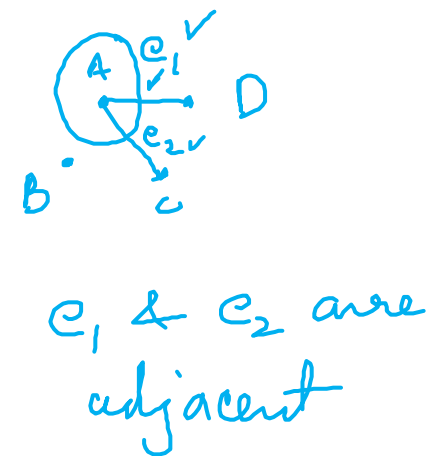 A e₁ ✓ ✓ D
e₂ ✓
B C
e₁ & e₂ are
adjacent